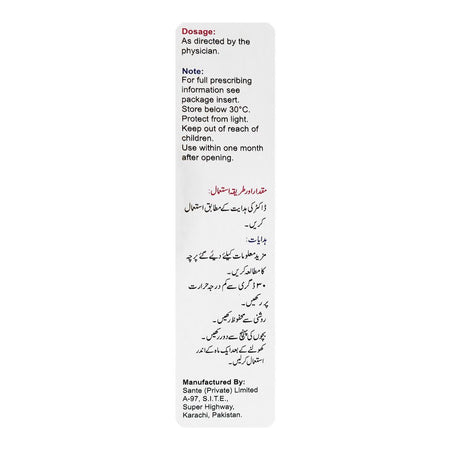 Dosage:
As directed by the
physician.
Note:
For full prescribing
information see
package insert.
Store below 30°C.
Protect from light.
Keep out of reach of
children.
Use within one month
after opening.
مقدار اور طریقہ استعمال:
ڈاکٹر کی ہدایت کے مطابق استعمال
کریں۔
ہدایات:
مزید معلومات کیلئے دیئے گئے پرچہ
کا مطالعہ کریں۔
۳۰ ڈگری سے کم درجہ حرارت
پر رکھیں۔
روشنی سے محفوظ رکھیں۔
بچوں کی پہنچ سے دور رکھیں۔
کھولنے کے بعد ایک ماہ کے اندر
استعمال کرلیں۔
Manufactured By:
Sante (Private) Limited
A-97, S.I.T.E.,
Super Highway,
Karachi, Pakistan.